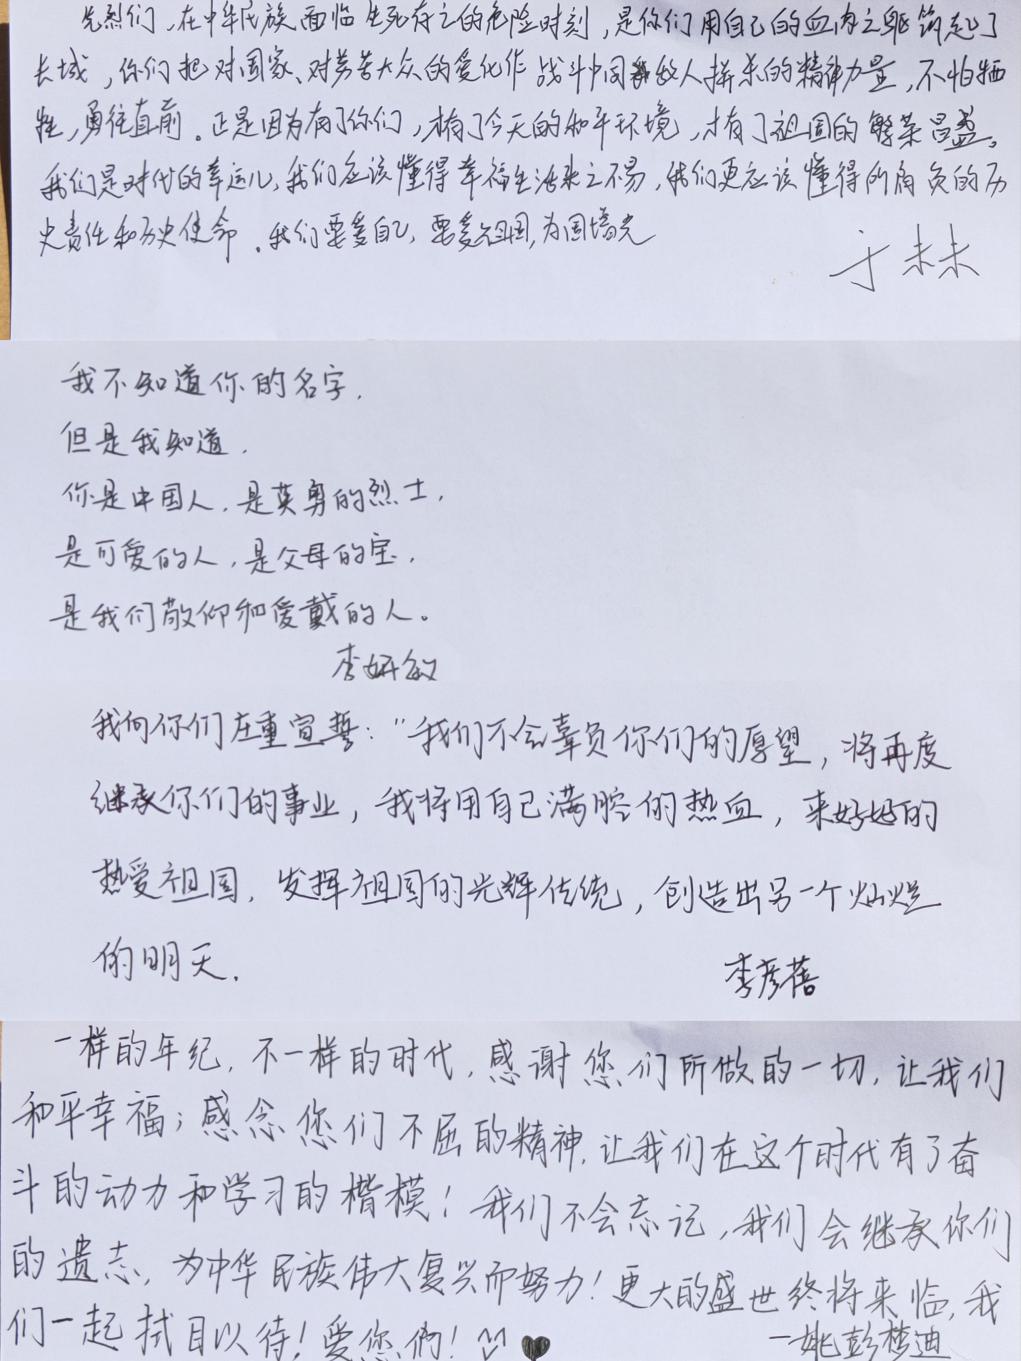 先烈们，在中华民族面临生死存亡的危险时刻，是你们用自己的血肉之躯筑起了
长城，你们把对国家、对劳苦大众的爱化作战斗中同敌人拼杀的精神力量，不怕牺
牲，勇往直前。正是因为有了你们，才有了今天的和平环境，才有了祖国的繁荣昌盛。
我们是时代的幸运儿，我们应该懂得幸福生活来之不易，我们更应该懂得所肩负的历
史责任和历史使命．我们要爱自己，要爱祖国，为国增光
于未未
我不知道你的名字．
但是我知道．
你是中国人．是英勇的烈士．
是可爱的人，是父母的宝．
是我们敬仰和爱戴的人。
李妍敏
我向你们庄重宣誓："我们不会辜负你们的厚望，将再度
继承你们的事业，我将用自己满腔的热血，来好好的
热爱祖国，发挥祖国的光辉传统，创造出另一个灿烂
的明天．
李彦蓓
一样的年纪，不一样的时代，感谢您们所做的一切，让我们
和平幸福；感念您们不屈的精神，让我们在这个时代有了奋
斗的动力和学习的楷模！我们不会忘记，我们会继承你们
的遗志，为中华民族伟大复兴而努力！更大的盛世终将来临，我
们一起拭目以待！爱您们！
—姚彭梦迪